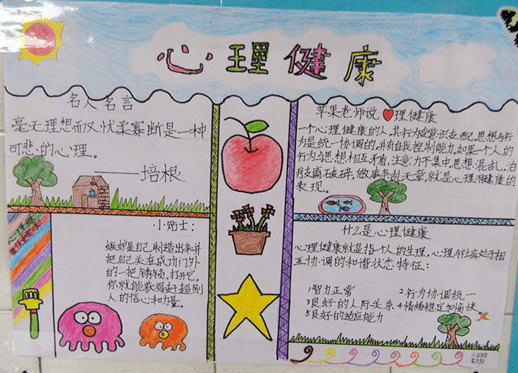 心理健康
名人名言
毫无理想而又优柔寡断是一种
可悲的心理。
——培根
苹果老师说 理健康
一个心理健康的人,其行为受意识支配,思想与行
为是统一协调的,并有自我控制能力。如果一个人的
行为与思想相互矛盾,注意力不集中,思想混乱,语
言支离破碎,做事杂乱无章,就是心理不健康的
表现。
小贴士:
嫉妒是自己制造出来并
把自己关在成功门外
的一把锈锁,打开它,
你就能获得赶超别
人的信心和力量。
什么是心理健康
心理健康就是指个人的生理,心理与社会处于相
互协调的和谐状态特征:
1智力正常 2行为协调统一
3良好的人际关系 4情绪稳定和愉快
5良好的适应能力